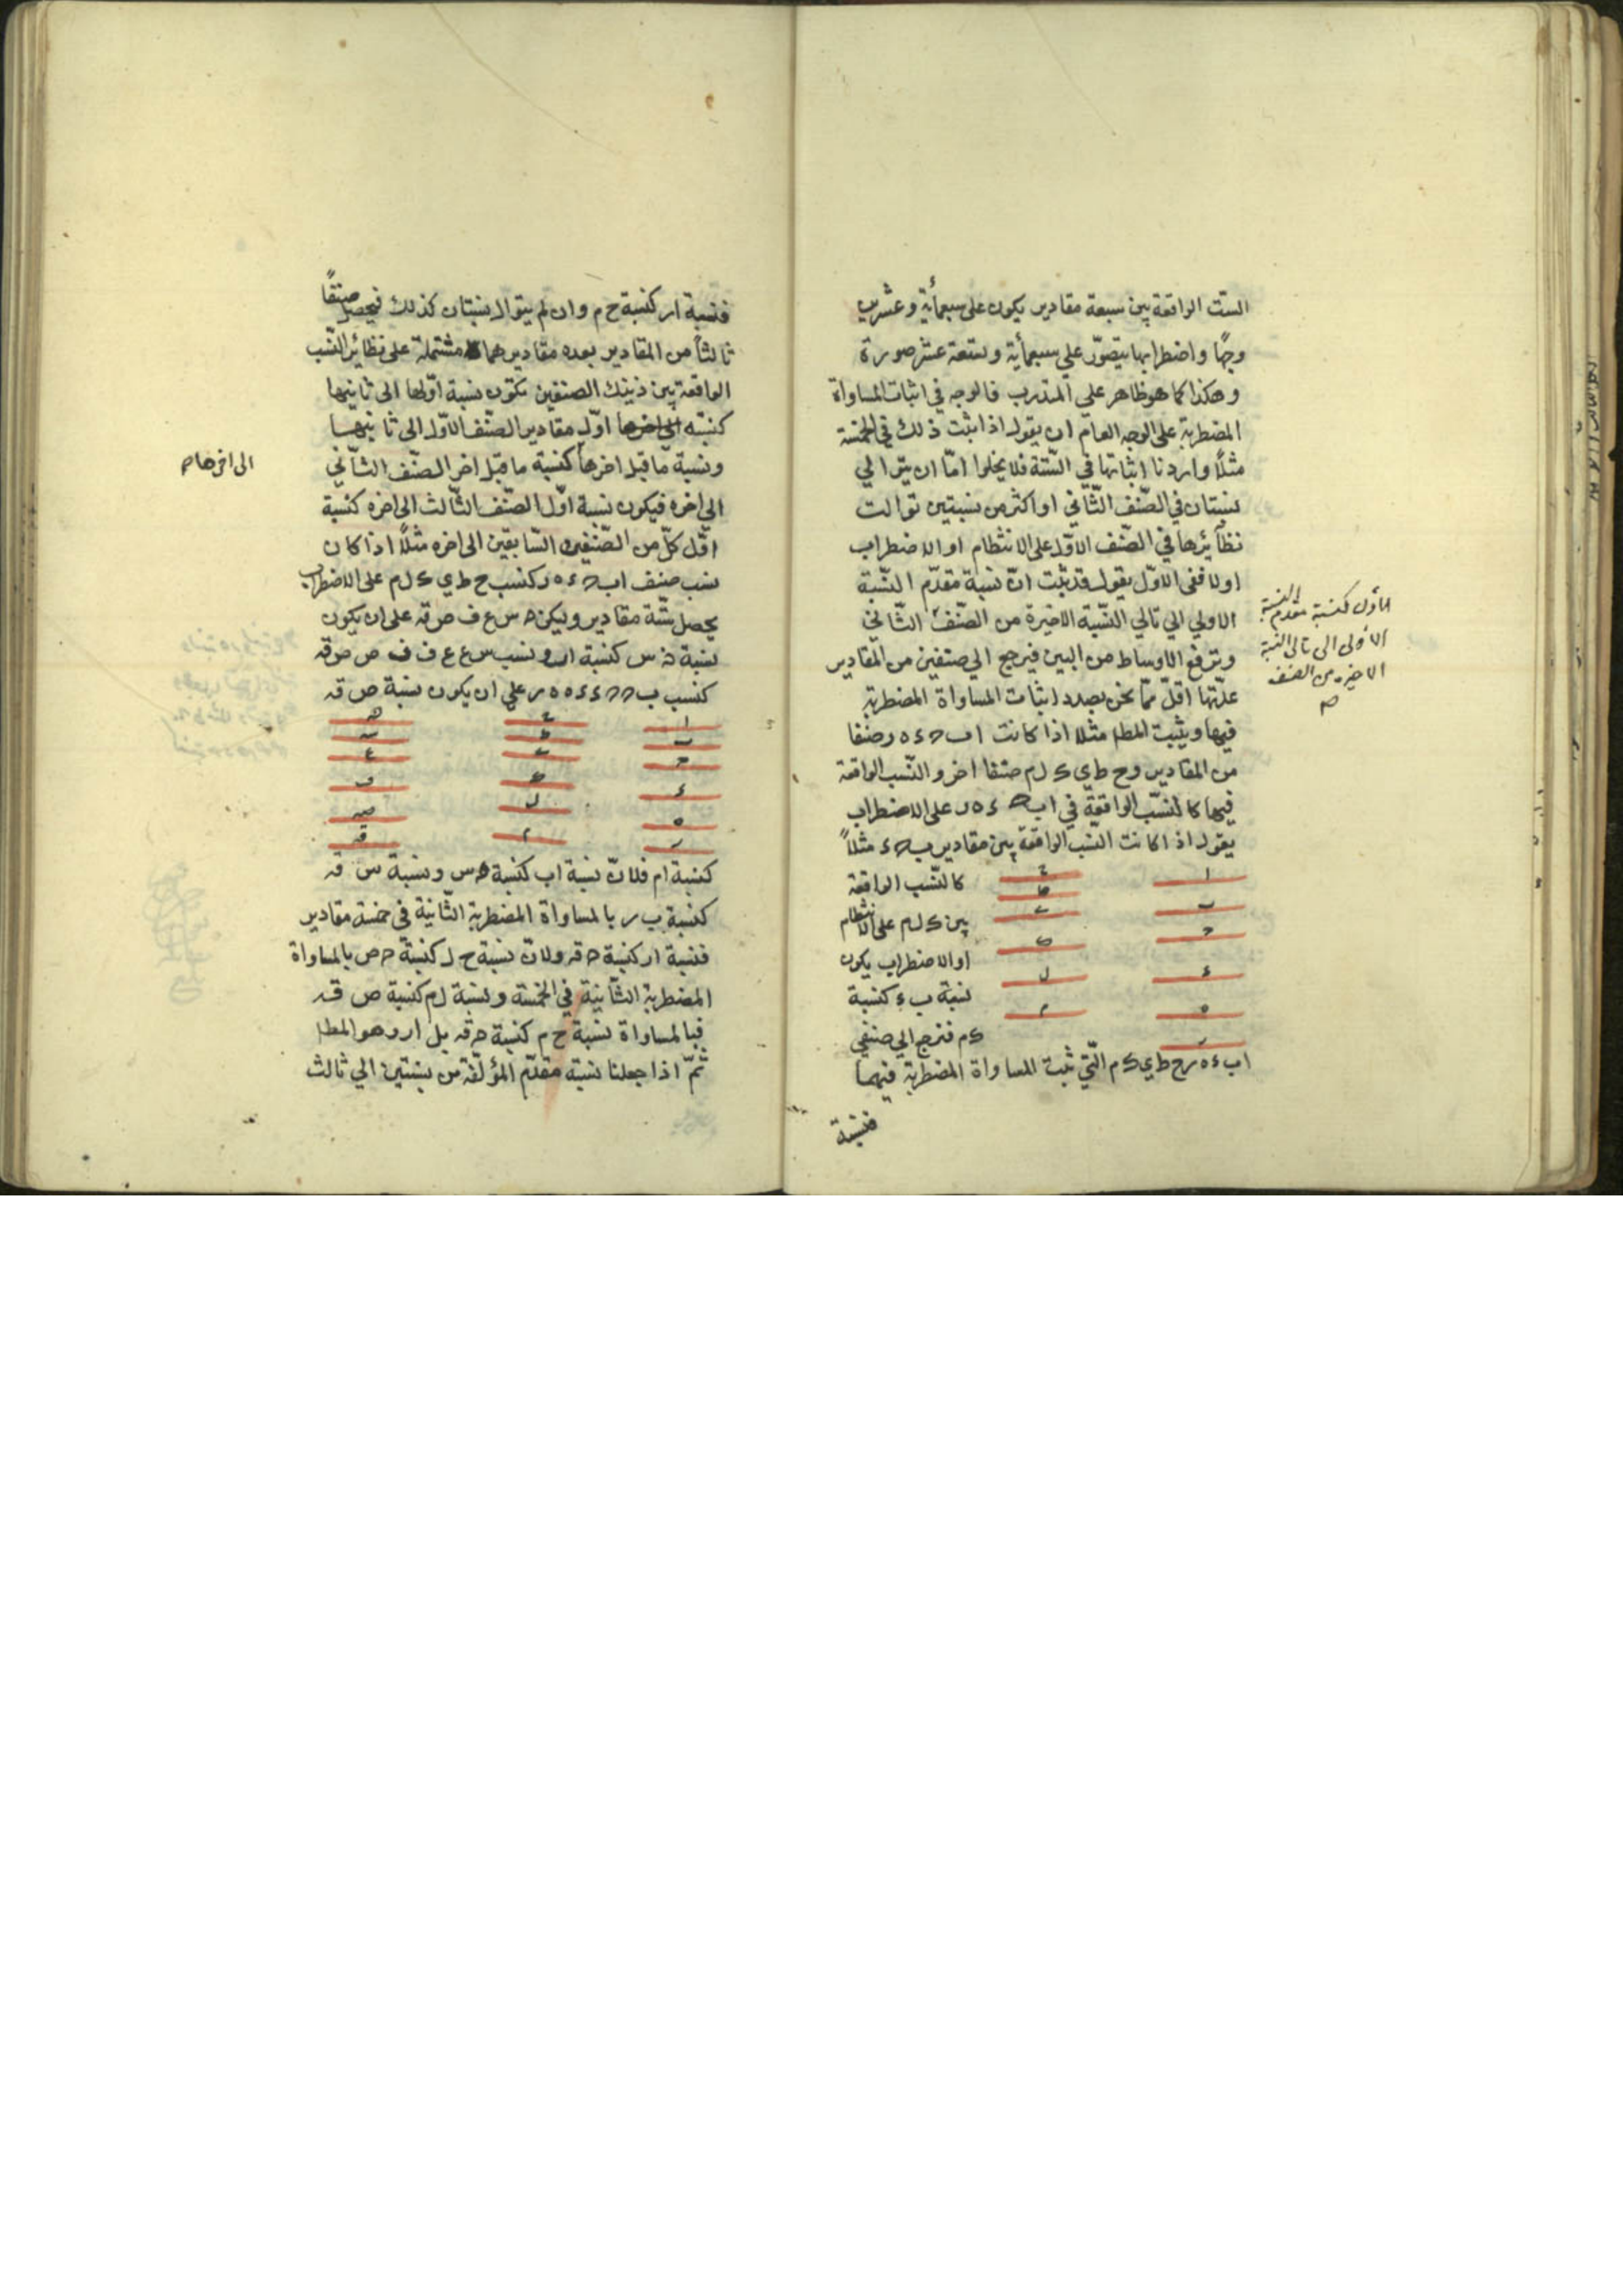 الستّ الواقعة بين سبعة مقادير يكون على سبعمأية وعشرين
وجهًا واضطرابها يتصوّر على سبعمأية وتسعة عشر صورة
وهكذا كما هو ظاهر على المتدرب فالوجه في اثبات المساواة
المضطربة على الوجه العام ان يقول اذا ثبت ذلك في الخمسة
مثلًا واردنا اثباتها في الستّة فلا يخلوا امّا ان يتوالي
نسبتان في الصّنف الثّاني او اكثر من نسبتين توالت
نظائرها في الصّنف الاوّل على الانتظام او الاضطراب
اولا ففى الاوّل يقول قد ثبت انّ نسبة مقدّم النّسبة
الاولي الي تالي النّسبة الاخيرة من الصّنف الثّاني
الاوّل كنسبة مقدم النسبة
الاولى الى تالى النسبة
الاخيرة من الصنف
صح
وترفع الاوساط من البين فيرجع الي صنفين من المقادير
عدّتها اقلّ ممّا نحن بصدد اثبات المساواة المضطربة
فيها ويثبت المط مثلا اذا كانت ا ب ح ء ه ر صنفا
من المقادير و ح ط ي ك ل م صنفا اخر والنّسب الواقعة
فيها كالنّسب الواقعة في ا ب ح ء ه ر على الاضطراب
يقول اذا كانت النسب الواقعة بين مقادير ب ح ء مثلاً
كالنّسب الواقعة
بين ك ل م على الانتظام
او الاضطراب يكون
نسبة ب ء كنسبة
ك م فنرجع الي صنفي
ا ح
ب ط
ح ي
ء ك
ه ل
ر م
ا ب ء ه ر ح ط ي ك م الّتي ثبت المساواة المضطربة فيهما
فنسبة
فنسبة ا ر كنسبة ح م وان لم يتوال نسبتان كذلك فيحصل صنفًا
ثالثًا من المقادير بعده مقاديرهما مشتملة على نظائر النّسب
الواقعة بين ذينك الصنفين تكون نسبة اوّلها الى ثانيها
كنسبة اوّل مقادير الصّنف الاوّل الى ثانيها
ونسبة ما قبل اخرها كنسبة ما قبل اخر الصّنف الثّاني
الى اخرها صح
الى اخره فيكون نسبة اوّل الصّنف الثّالث الى اخره كنسبة
اوّل كلّ من الصّنفين السّابقين الى اخره مثلًا اذا كان
نسب صنف ا ب ح ء ه ر كنسب ح ط ي ك ل م على الاضطراب
يحصل ستّة مقادير وليكن س ع ف ص ق على ان يكون
نسبة س كنسبة ا ب ونسب س ع ع ف ف ص ص ق
كنسب ب ح ح ء ء ه ه ر على ان يكون نسبة ص ق
ا ح
ب ط س
ح ي ع
ء ك ف
ه ل ص
ر م ق
كنسبة ا م فلانّ نسبة ا ب كنسبة س ونسبة س ق
كنسبة ب ر بالمساواة المضطربة الثّانية في خمسة مقادير
فنسبة ا ر كنسبة ق ولانّ نسبة ح ل كنسبة ص بالمساواة
المضطربة الثّانية في الخمسة ونسبة ل م كنسبة ص ق
فبالمساواة نسبة ح م كنسبة ق بل ا ر وهو المط
ثمّ اذا جعلنا نسبة مقدّم المؤلّفة من نسبتين الي ثالث